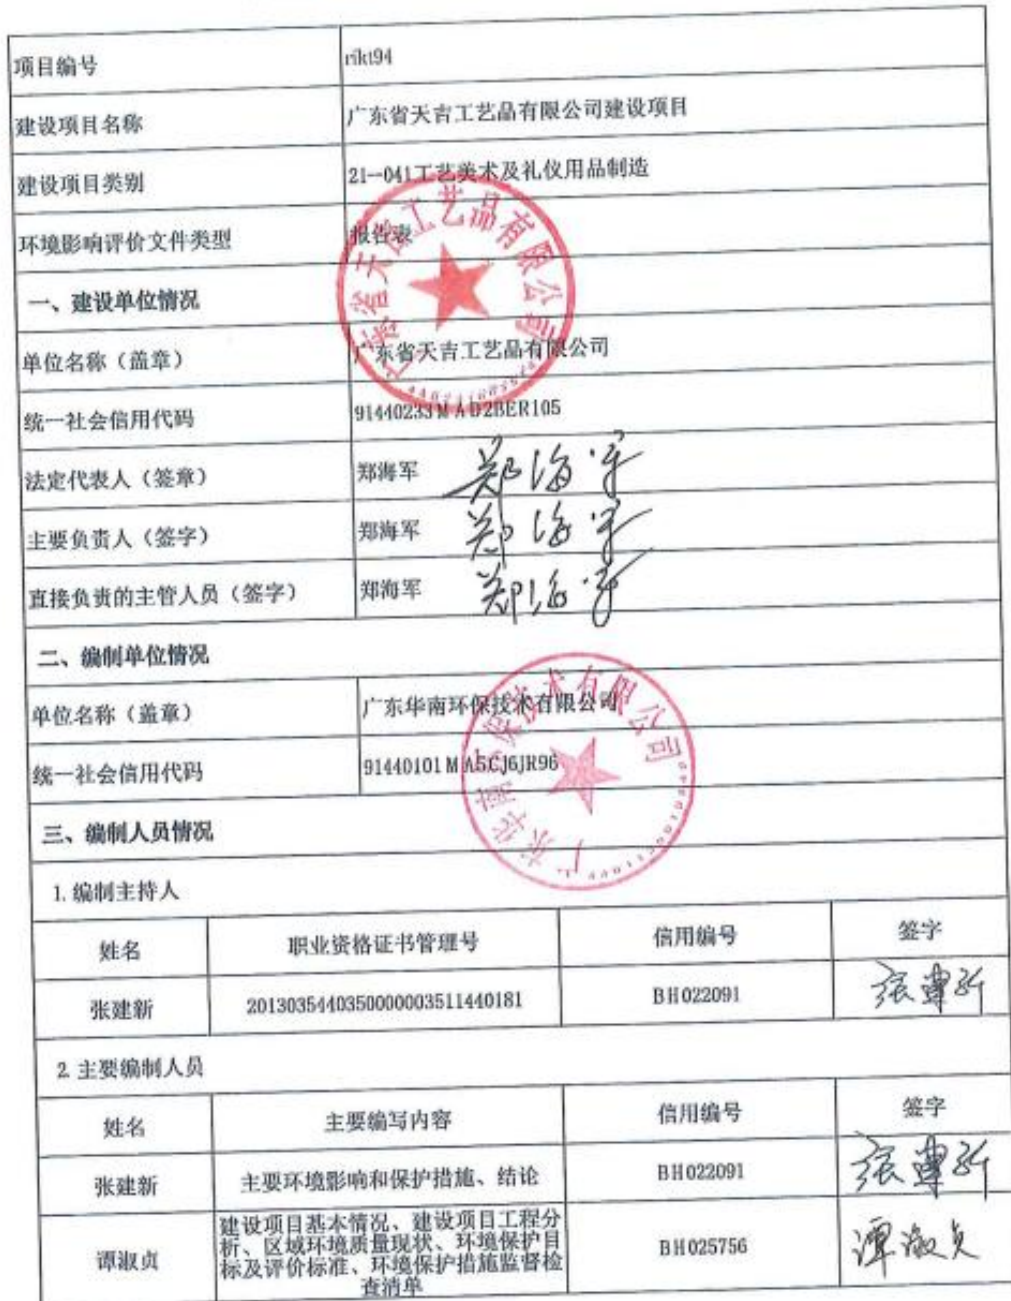 项目编号 rikt94
建设项目名称 广东省天吉工艺品有限公司建设项目
建设项目类别 21--041工艺美术及礼仪用品制造
环境影响评价文件类型 报告表
一、建设单位情况
单位名称（盖章） 广东省天吉工艺品有限公司
统一社会信用代码 91440233MAD2BER105
法定代表人（签章） 郑海军 郑海军
主要负责人（签字） 郑海军 郑海军
直接负责的主管人员（签字） 郑海军 郑海军
二、编制单位情况
单位名称（盖章） 广东华南环保技术有限公司
统一社会信用代码 91440101MA5CJ6JR96
三、编制人员情况
1.编制主持人
姓名 职业资格证书管理号 信用编号 签字
张建新 2013035440350000003511440181 BH022091 张建新
2.主要编制人员
姓名 主要编写内容 信用编号 签字
张建新 主要环境影响和保护措施、结论 BH022091 张建新
建设项目基本情况、建设项目工程分
析、区域环境质量现状、环境保护目
标及评价标准、环境保护措施监督检
查清单
谭淑贞 BH025756 谭淑贞
广东省天吉工艺品有限公司
广东华南环保技术有限公司